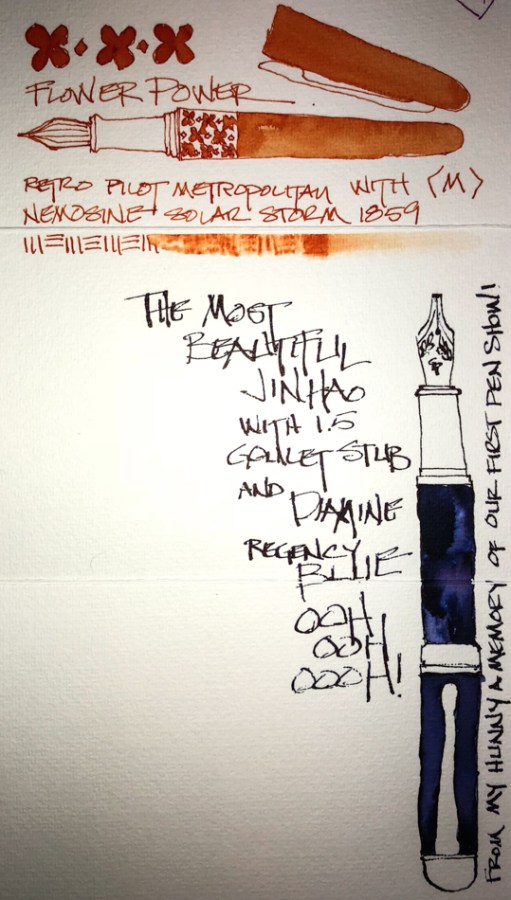 FLOWER POWER
RETRO PILOT METROPOLITAN WITH <M>
NEMOSINE SOLAR STORM 1859
THE MOST
BEAUTIFUL
JINHAO
WITH 1.5
GOULET STUB
AND DIAMINE
REGENCY
BLUE
OOH
OOH
OOOH!
FROM MY HUNNY A MEMORY OF OUR FIRST PEN SHOW!